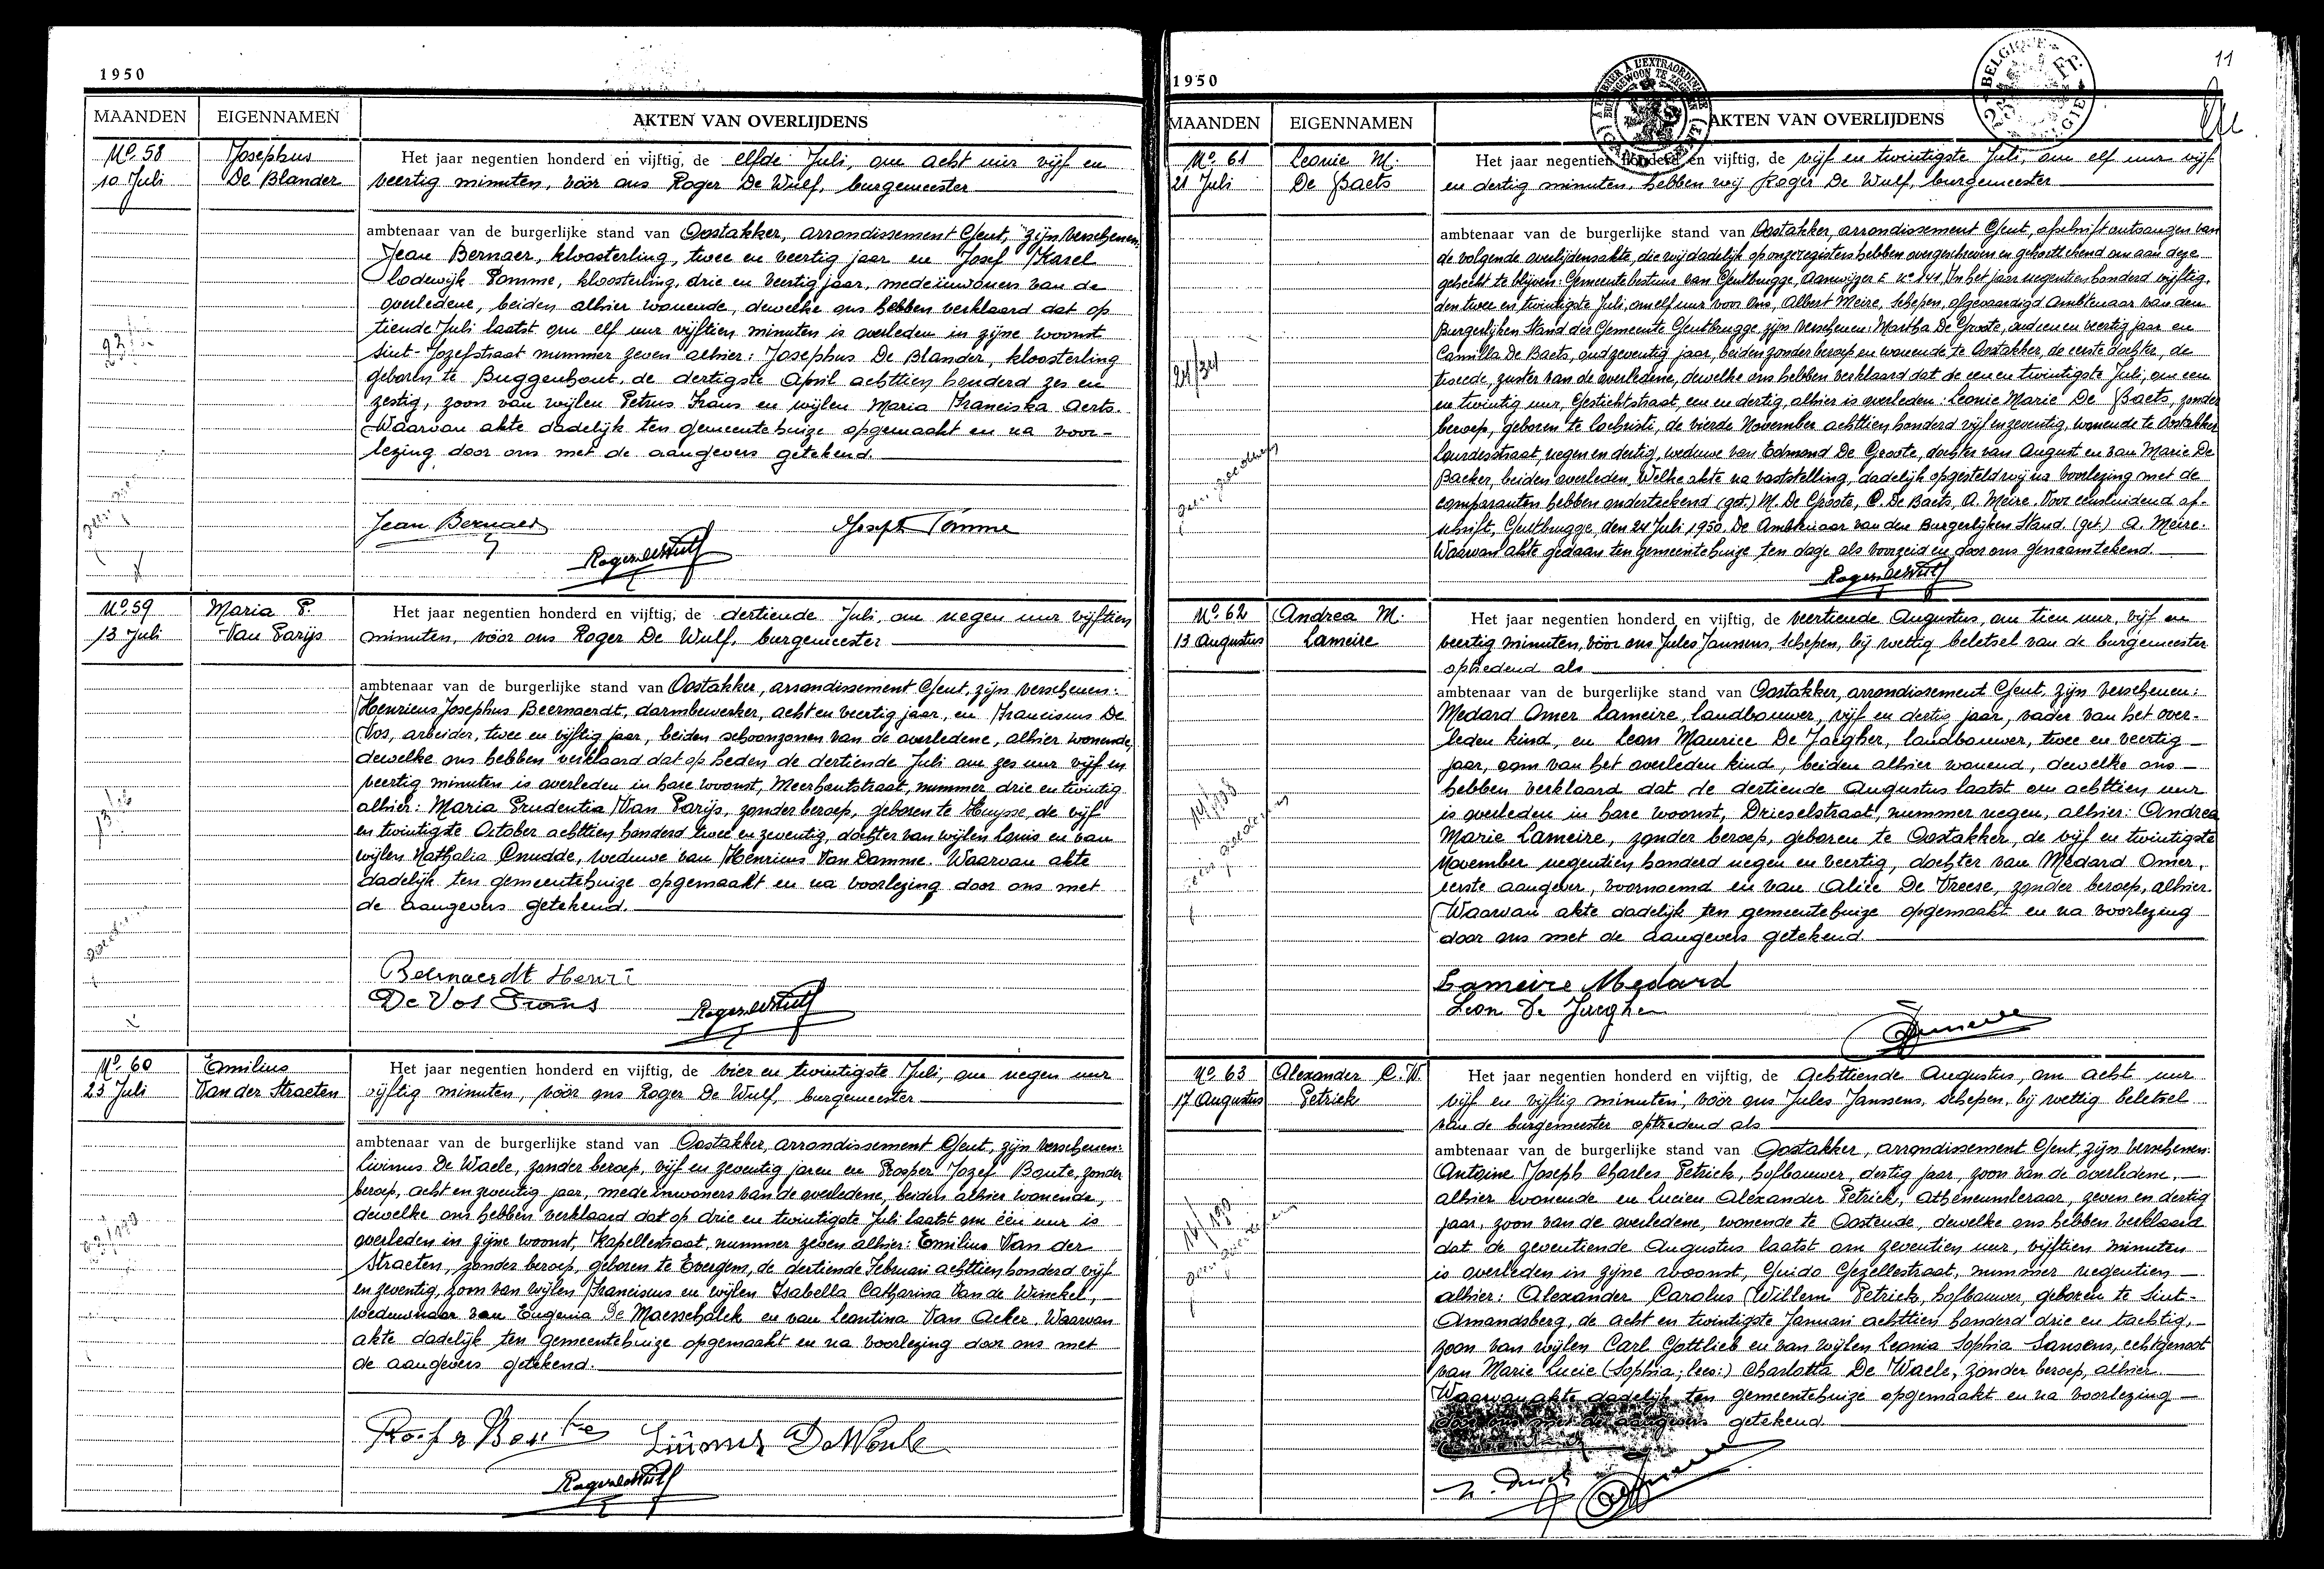 1950
MAANDEN EIGENNAMEN AKTEN VAN OVERLIJDENS
No. 58
10 Juli
Josephus
De Blander
Het jaar negentien honderd en vijftig, de elfde Juli, om acht uur vijf en
veertig minuten, vóór ons Roger De Wulf, burgemeester
ambtenaar van de burgerlijke stand van Oostakker, arrondissement Gent, zijn verschenen
Jean Bernaer, kloosterling, twee en veertig jaar en Josef Karel
Lodewijk Tomme, kloosterling, drie en veertig jaar, medeïnwoners van de
overledene, beiden alhier wonende, dewelke ons hebben verklaard dat op
tiende Juli laatst om elf uur vijftien minuten is overleden in zijne woonst
Sint-Jozefstraat nummer zeven alhier: Josephus De Blander, kloosterling
geboren te Buggenhout, de dertigste April achttien honderd zes en
zestig, zoon van wijlen Petrus Frans en wijlen Maria Franciska Aerts.
Waarvan akte dadelijk ten gemeentehuize opgemaakt en na voor-
lezing door ons met de aangevers getekend.
Jean Bernaer
Joseph Tomme
Roger De Wulf
No. 59
13 Juli
Maria P.
Van Parijs
Het jaar negentien honderd en vijftig, de dertiende Juli, om negen uur vijftien
minuten, vóór ons Roger De Wulf, burgemeester
ambtenaar van de burgerlijke stand van Oostakker, arrondissement Gent, zijn verschenen:
Henricus Josephus Beernaerdt, darmbewerker, acht en veertig jaar, en Franciscus De
Vos, arbeider, twee en vijftig jaar, beiden schoonzonen van de overledene, alhier wonende,
dewelke ons hebben verklaard dat op heden de dertiende Juli om zes uur vijf en
veertig minuten is overleden in hare woonst, Meerhoutstraat, nummer drie en twintig
alhier: Maria Prudentia Van Parijs, zonder beroep, geboren te Huysse, de vijf
en twintigste October achttien honderd twee en zeventig, dochter van wijlen Louis en van
wijlen Nathalia Cnudde, weduwe van Henricus Van Damme. Waarvan akte
dadelijk ten gemeentehuize opgemaakt en na voorlezing door ons met
de aangevers getekend.
Beernaerdt Henri
De Vos Frans
Roger De Wulf
No. 60
23 Juli
Emilius
Van der Straeten
Het jaar negentien honderd en vijftig, de vier en twintigste Juli, om negen uur
vijftig minuten, vóór ons Roger De Wulf, burgemeester
ambtenaar van de burgerlijke stand van Oostakker, arrondissement Gent, zijn verschenen:
Livinus De Waele, zonder beroep, vijf en zeventig jaren en Prosper Jozef Baute, zonder
beroep, acht en zeventig jaar, mede inwoners van de overledene, beiden alhier wonende,
dewelke ons hebben verklaard dat op drie en twintigste Juli laatst om één uur is
overleden in zijne woonst, Kapellestraat, nummer zeven alhier: Emilius Van der
Straeten, zonder beroep, geboren te Evergem, de dertiende Februari achttien honderd vijf
en zeventig, zoon van wijlen Franciscus en wijlen Isabella Catharina Van de Winckel,
weduwnaar van Eugenia De Maesschalck en van Leontina Van Acker. Waarvan
akte dadelijk ten gemeentehuize opgemaakt en na voorlezing door ons met
de aangevers getekend.
Roger De Wulf
1950
11
MAANDEN EIGENNAMEN AKTEN VAN OVERLIJDENS
No. 61
21 Juli
Leonie M.
De Baets
Het jaar negentien honderd en vijftig, de vijf en twintigste Juli, om elf uur vijf
en dertig minuten, hebben wij Roger De Wulf, burgemeester
ambtenaar van de burgerlijke stand van Oostakker, arrondissement Gent, afschrift ontvangen van
de volgende overlijdensakte, die wij dadelijk op onze registers hebben overgeschreven en gehandtekend om aan deze
gehecht te blijven: Gemeentebestuur van Gentbrugge, Aanwijzer E no 141, In het jaar negentien honderd vijftig,
den twee en twintigste Juli, om elf uur voor Ons, Albert Meire, Schepen, afgevaardigd Ambtenaar van den
Burgerlijken Stand der Gemeente Gentbrugge, zijn verschenen: Martha De Groote, oud een en veertig jaar en
Camilla De Baets, oud zeventig jaar, beiden zonder beroep en wonende te Oostakker, de eerste dochter, de
tweede, zuster van de overledene, dewelke ons hebben verklaard dat de een en twintigste Juli, om een
en twintig uur, Gestichtstraat, een en dertig, alhier is overleden: Leonie Marie De Baets, zonder
beroep, geboren te Lochristi, de vierde November achttien honderd vijf en zeventig, wonende te Oostakker
Lourdesstraat, negen en dertig, weduwe van Edmond De Groote, dochter van August en van Marie De
Backer, beiden overleden. Welke akte na vaststelling, dadelijk opgesteld wij na voorlezing met de
comparanten hebben ondertekend (get.) M. De Groote, C. De Baets, A. Meire. Voor eensluidend af-
schrift, Gentbrugge, den 24 Juli 1950. De Ambtenaar van den Burgerlijken Stand. (get.) A. Meire.
Waarvan akte gedaan ten gemeentehuize ten dage als voorzeid en door ons genaamtekend.
Roger De Wulf
No. 62
13 Augustus
Andrea M.
Lameire
Het jaar negentien honderd en vijftig, de veertiende Augustus, om tien uur, vijf en
veertig minuten, vóór ons Jules Janssens, Schepen, bij wettig beletsel van de burgemeester
optredend als
ambtenaar van de burgerlijke stand van Oostakker, arrondissement Gent, zijn verschenen:
Medard Omer Lameire, landbouwer, vijf en dertig jaar, vader van het over-
leden kind, en Leon Maurice De Jaegher, landbouwer, twee en veertig
jaar, oom van het overleden kind, beiden alhier wonend, dewelke ons
hebben verklaard dat de dertiende Augustus laatst om achttien uur
is overleden in hare woonst, Drieselstraat, nummer negen, alhier: Andrea
Marie Lameire, zonder beroep, geboren te Oostakker, de vijf en twintigste
November negentien honderd negen en veertig, dochter van Medard Omer,
eerste aangever, voornoemd en van Alice De Vreese, zonder beroep, alhier.
Waarvan akte dadelijk ten gemeentehuize opgemaakt en na voorlezing
door ons met de aangevers getekend.
Lameire Medard
Leon De Jaegher
No. 63
17 Augustus
Alexander C. W.
Petrick
Het jaar negentien honderd en vijftig, de achttiende Augustus, om acht uur
vijf en vijftig minuten, vóór ons Jules Janssens, schepen, bij wettig beletsel
van de burgemeester optredend als
ambtenaar van de burgerlijke stand van Oostakker, arrondissement Gent, zijn verschenen:
Antoine Joseph Charles Petrick, hofbouwer, dertig jaar, zoon van de overledene,
alhier wonende en Lucien Alexander Petrick, atheneumleraar, zeven en dertig
jaar, zoon van de overledene, wonende te Oostende, dewelke ons hebben verklaard
dat de zeventiende Augustus laatst om zeventien uur, vijftien minuten
is overleden in zijne woonst, Guido Gezellestraat, nummer negentien
alhier: Alexander Carolus Willem Petrick, hofbouwer, geboren te Sint-
Amandsberg, de acht en twintigste Januari achttien honderd drie en tachtig,
zoon van wijlen Carl Gottlieb en van wijlen Leonia Sophia Sansens, echtgenoot
van Marie Lucie (Sophia; lees:) Charlotta De Waele, zonder beroep, alhier.
Waarvan akte dadelijk ten gemeentehuize opgemaakt en na voorlezing
door ons met de aangevers getekend.